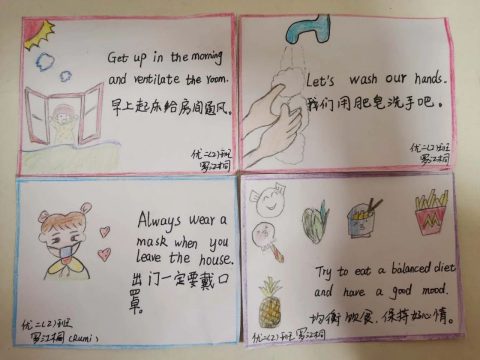 Get up in the morning
and ventilate the room.
早上起床给房间通风。
优二(2)班
罗江桐
Let's wash our hands.
我们用肥皂洗手吧。
优二(2)班
罗江桐
Always wear a
mask when you
leave the house.
出门一定要戴口
罩。
优二(2)班
罗江桐(Rumi)
Try to eat a balanced diet
and have a good mood.
均衡饮食，保持好心情。
优二(2)班 罗江桐